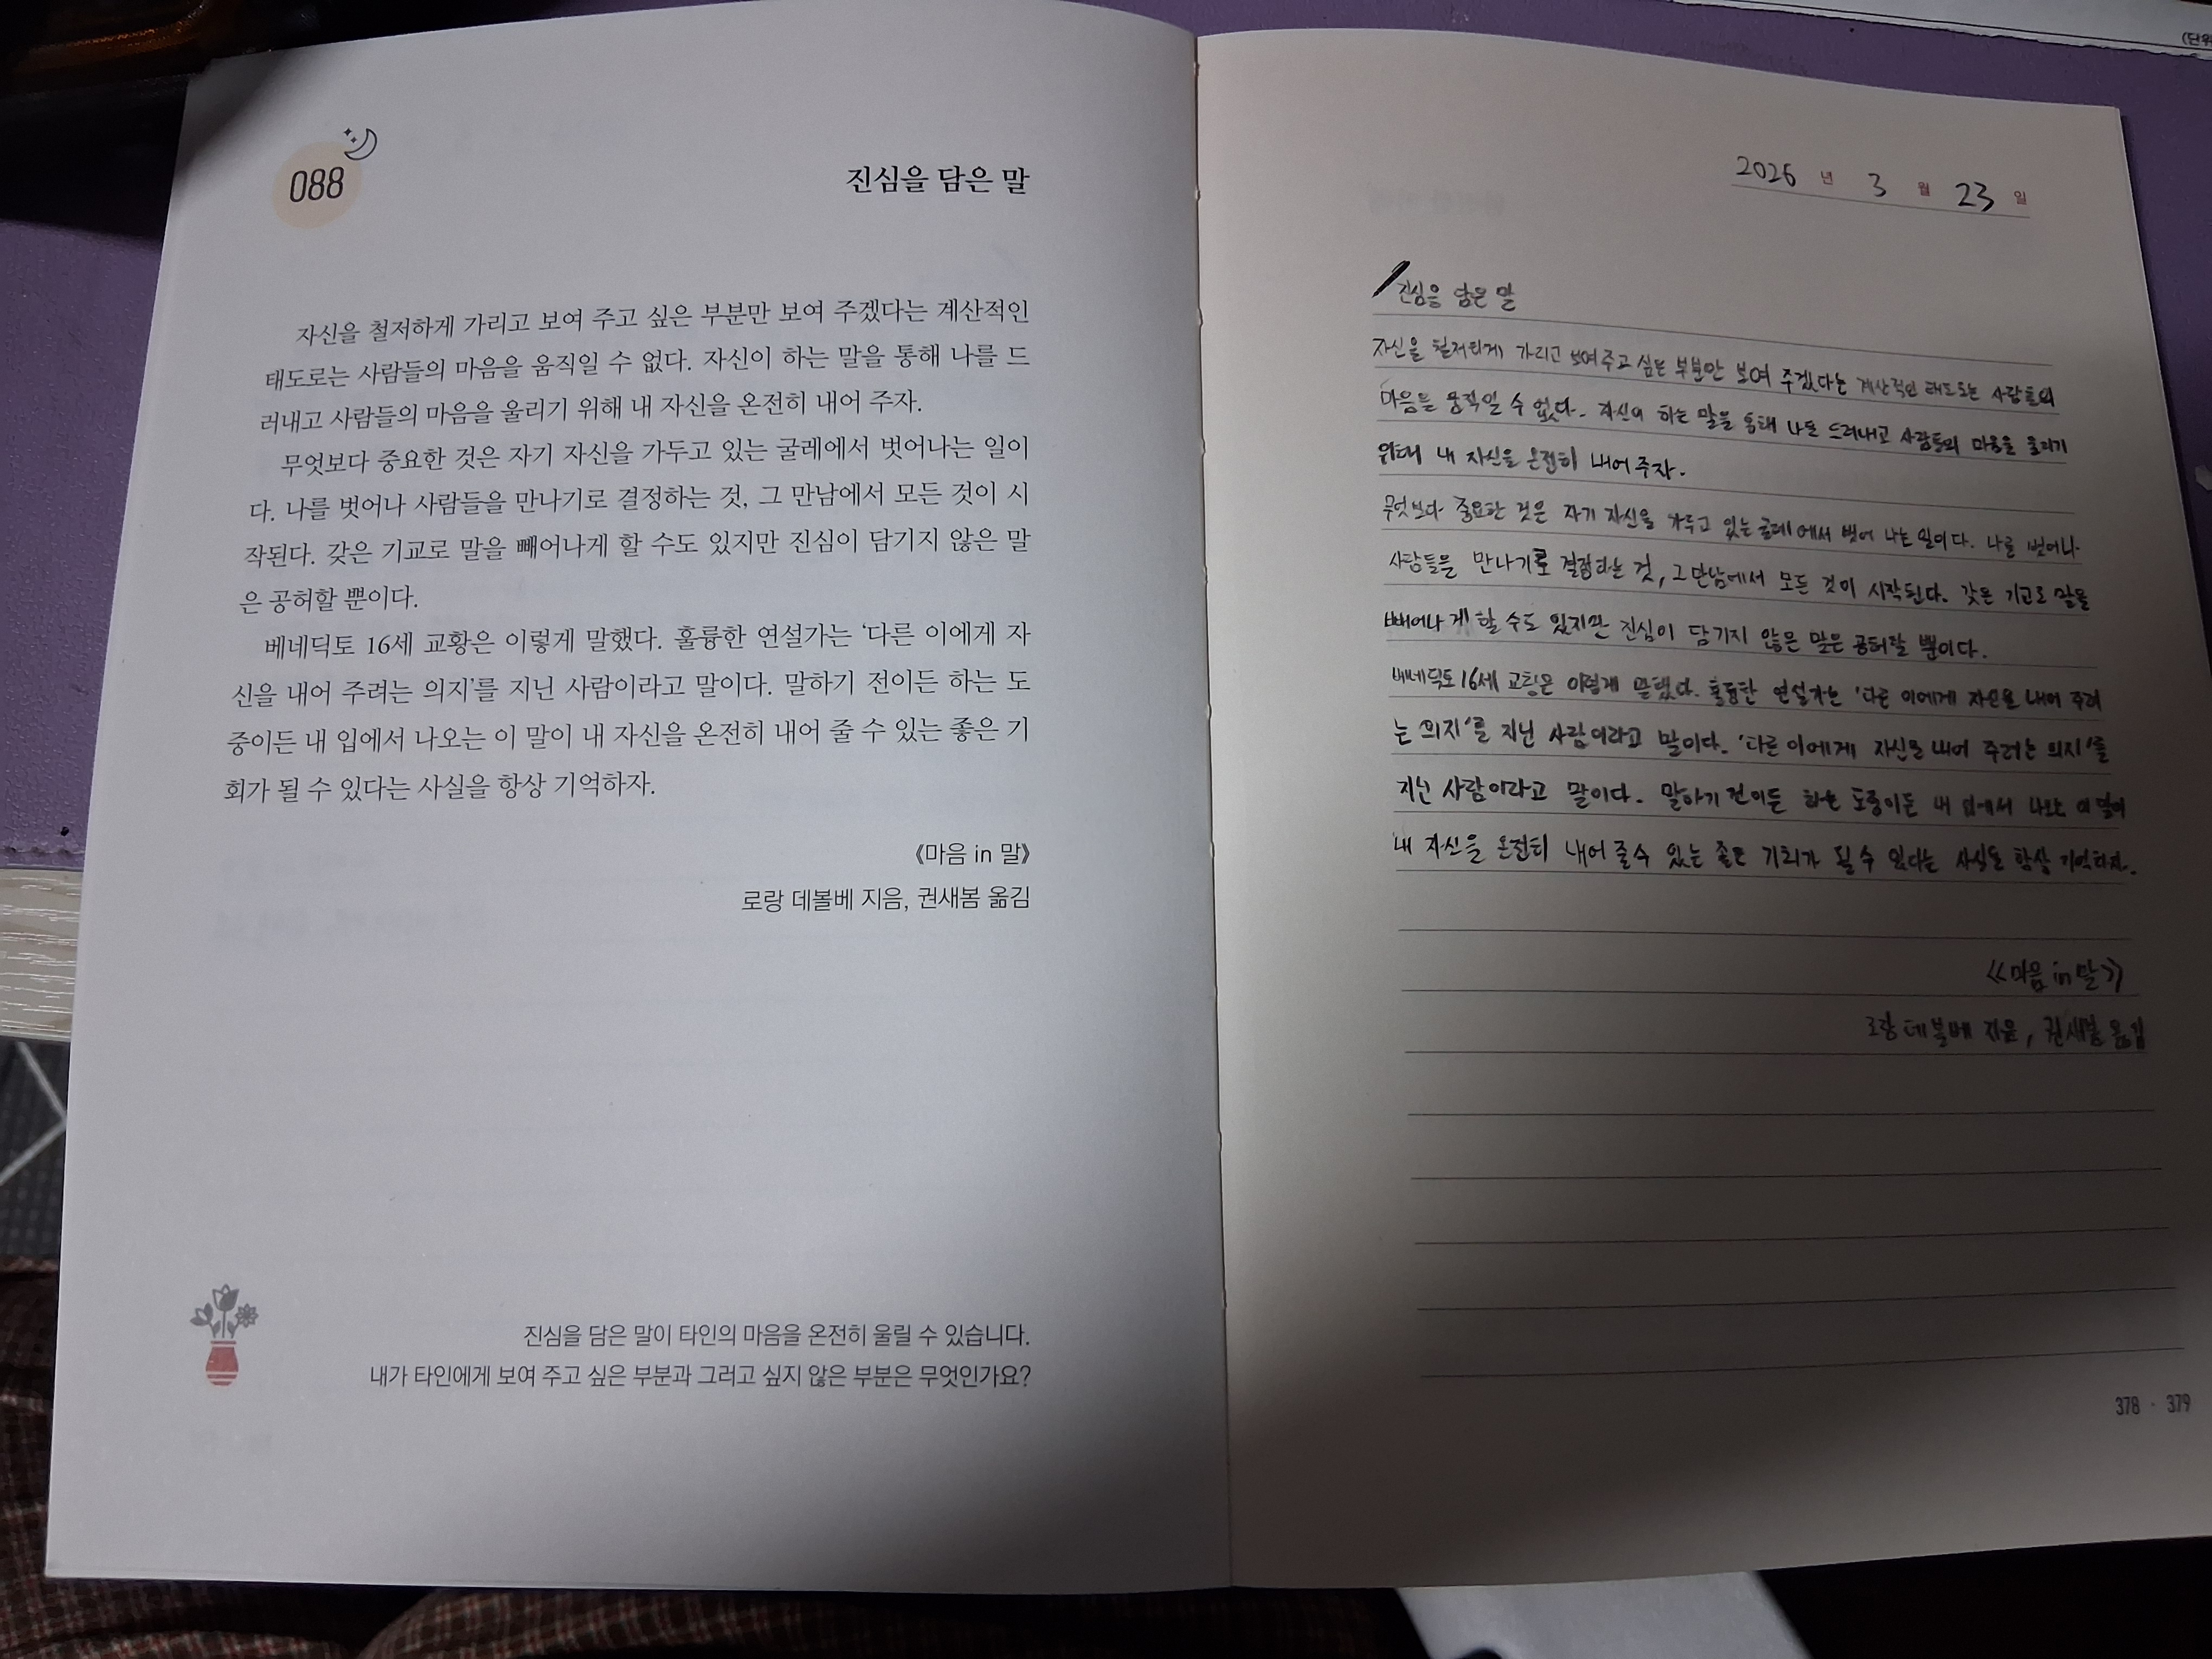 088
진심을 담은 말
자신을 철저하게 가리고 보여 주고 싶은 부분만 보여 주겠다는 계산적인
태도로는 사람들의 마음을 움직일 수 없다. 자신이 하는 말을 통해 나를 드
러내고 사람들의 마음을 울리기 위해 내 자신을 온전히 내어 주자.
무엇보다 중요한 것은 자기 자신을 가두고 있는 굴레에서 벗어나는 일이
다. 나를 벗어나 사람들을 만나기로 결정하는 것, 그 만남에서 모든 것이 시
작된다. 갖은 기교로 말을 빼어나게 할 수도 있지만 진심이 담기지 않은 말
은 공허할 뿐이다.
베네딕토 16세 교황은 이렇게 말했다. 훌륭한 연설가는 ‘다른 이에게 자
신을 내어 주려는 의지’를 지닌 사람이라고 말이다. 말하기 전이든 하는 도
중이든 내 입에서 나오는 이 말이 내 자신을 온전히 내어 줄 수 있는 좋은 기
회가 될 수 있다는 사실을 항상 기억하자.
《마음 in 말》
로랑 데볼베 지음, 권새봄 옮김
진심을 담은 말이 타인의 마음을 온전히 울릴 수 있습니다.
내가 타인에게 보여 주고 싶은 부분과 그러고 싶지 않은 부분은 무엇인가요?
2026 년 3 월 23 일
진심을 담은 말
자신을 철저하게 가리고 보여주고 싶은 부분만 보여 주겠다는 계산적인 태도로는 사람들의
마음을 움직일 수 없다. 자신이 하는 말을 통해 나를 드러내고 사람들의 마음을 울리기
위해 내 자신을 온전히 내어 주자.
무엇보다 중요한 것은 자기 자신을 가두고 있는 굴레에서 벗어 나는 일이다. 나를 벗어나
사람들을 만나기로 결정하는 것, 그 만남에서 모든 것이 시작된다. 갖은 기교로 말을
빼어나게 할 수도 있지만 진심이 담기지 않은 말은 공허할 뿐이다.
베네딕토 16세 교황은 이렇게 말했다. 훌륭한 연설가는 '다른 이에게 자신을 내어 주려
는 의지'를 지닌 사람이라고 말이다. '다른 이에게 자신을 내어 주려는 의지'를
지닌 사람이라고 말이다. 말하기 전이든 하는 도중이든 내 입에서 나오는 이 말이
내 자신을 온전히 내어 줄 수 있는 좋은 기회가 될 수 있다는 사실을 항상 기억하자.
《마음 in 말》
로랑 데볼베 지음, 권새봄 옮김
378 · 379